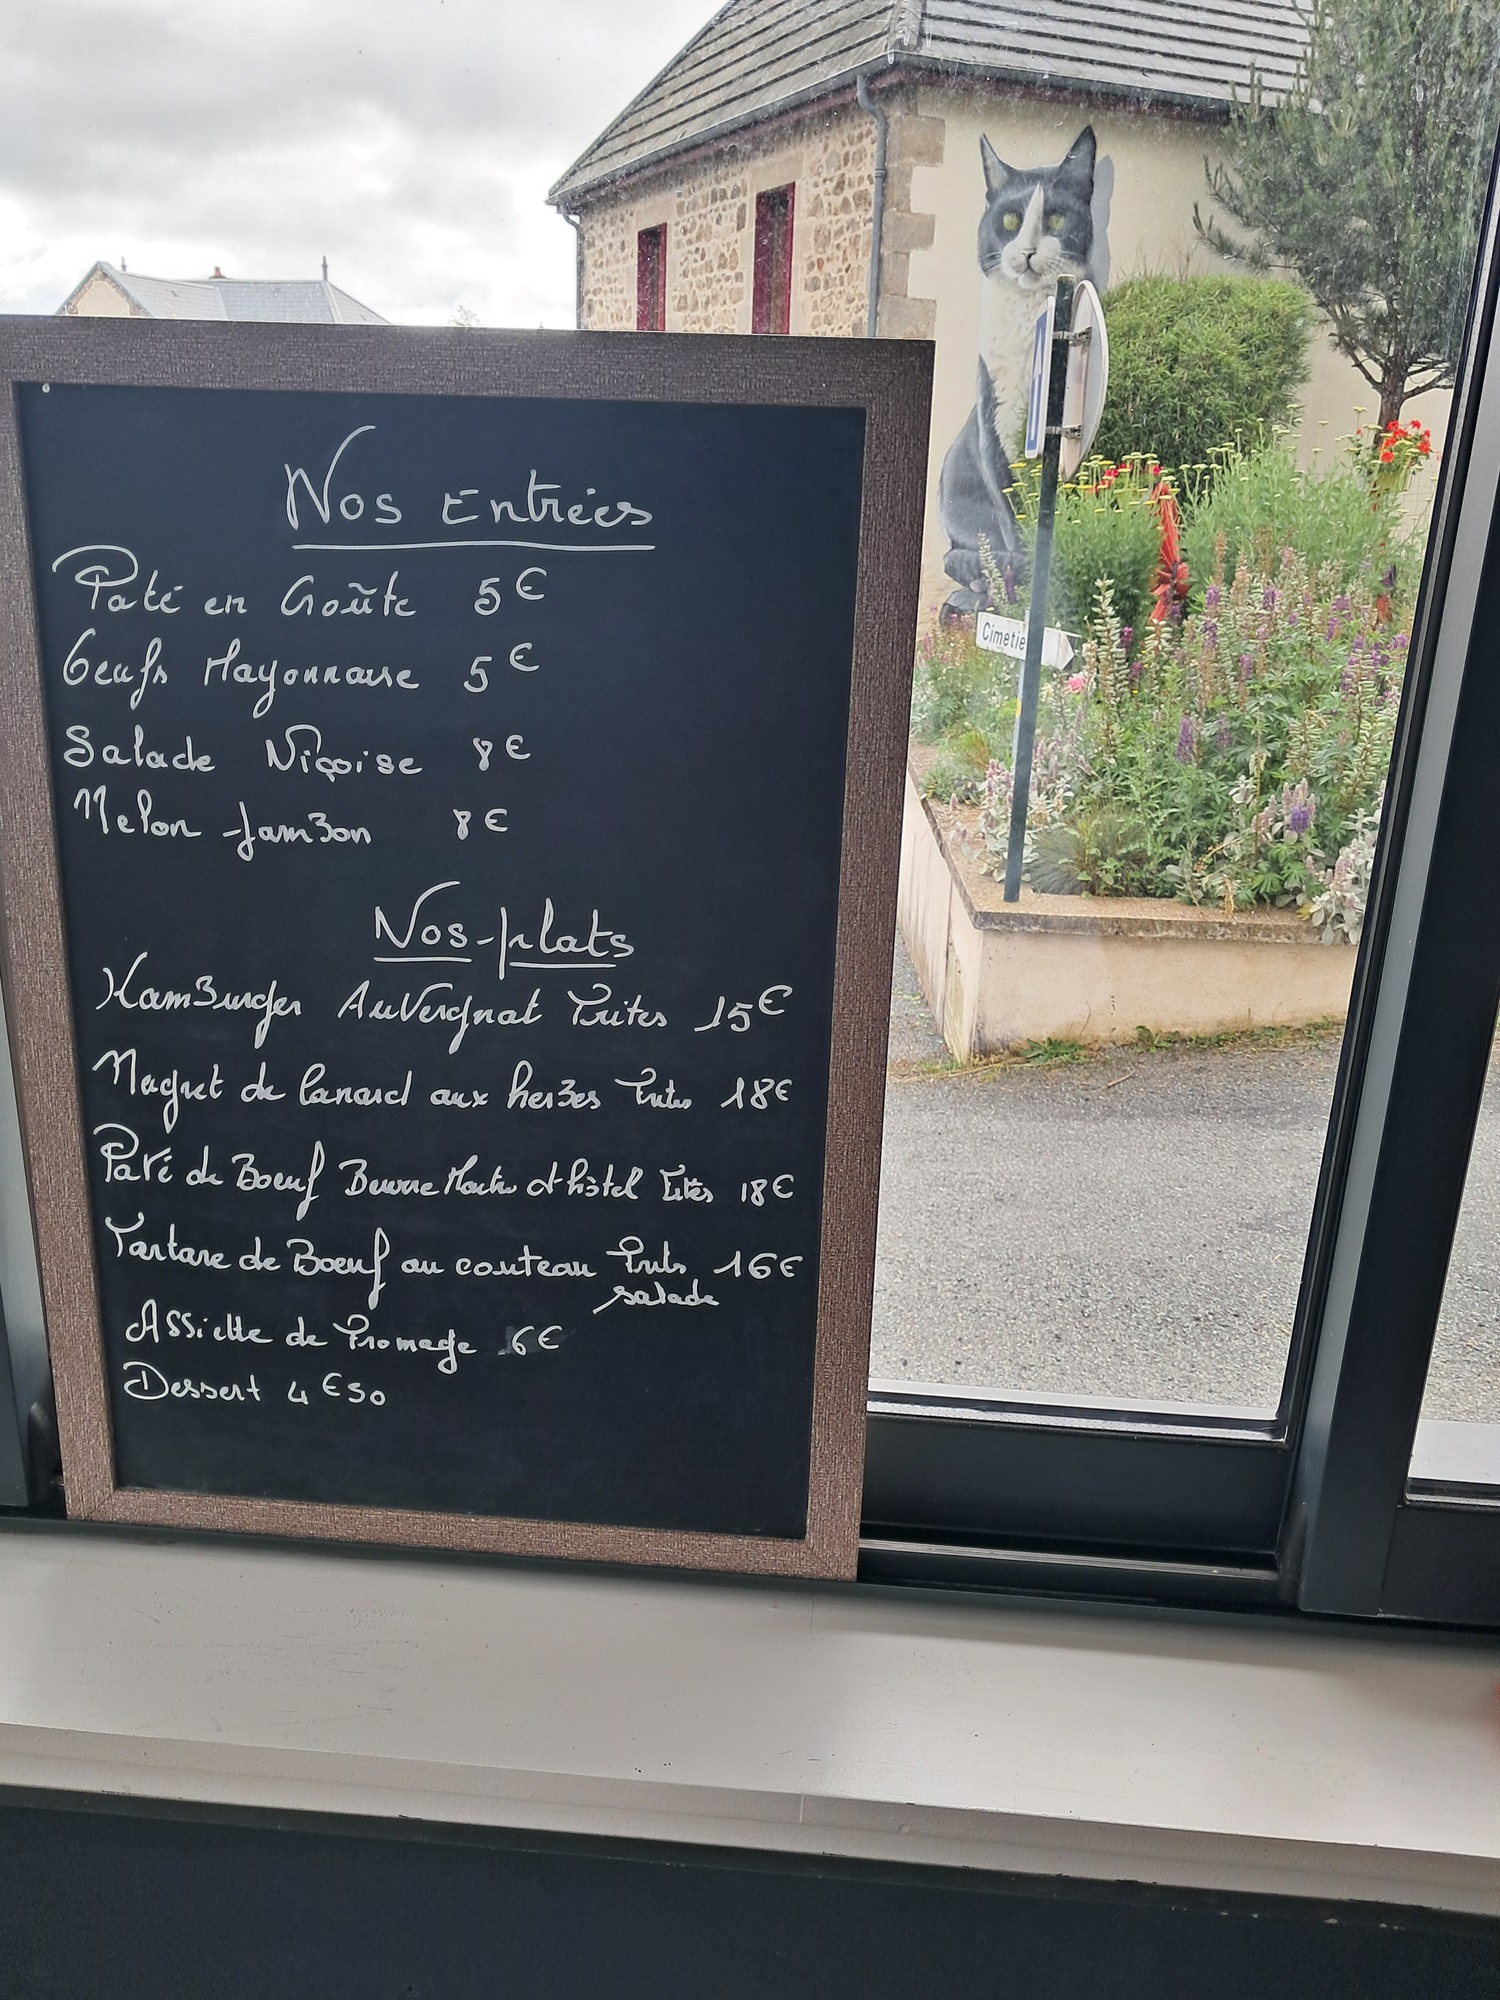 Nos Entrées
Paté en Croûte 5€
Oeufs Mayonnaise 5€
Salade Niçoise 8€
Melon Jambon 8€
Nos plats
Hamburger Auvergnat Frites 15€
Magret de Canard aux herbes Frites 18€
Pavé de Boeuf Beurre Maitre d'hôtel Frites 18€
Tartare de Boeuf au couteau Frites 16€
salade
Assiette de Fromage 6€
Dessert 4€50
Cimetie